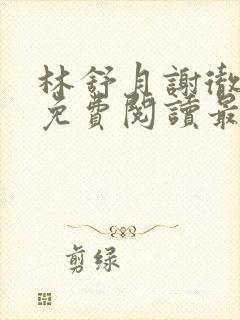 林舒月謝徹
免費閱讀最
剪绿